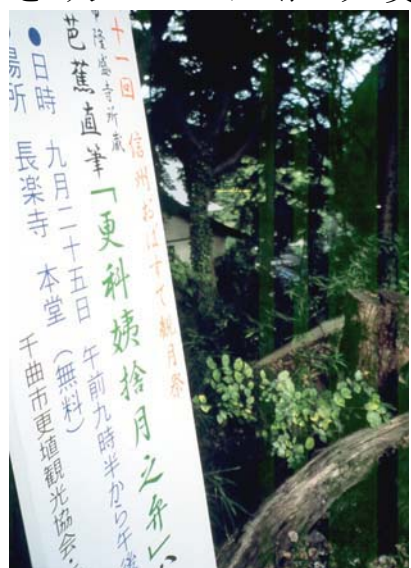 十一回 信州おばすて観月祭
隆盛寺所蔵
芭蕉直筆「更科姨捨月之弁」
●日時 九月二十五日 午前九時半から午後
場所 長楽寺 本堂 (無料)
千曲市更埴観光協会・